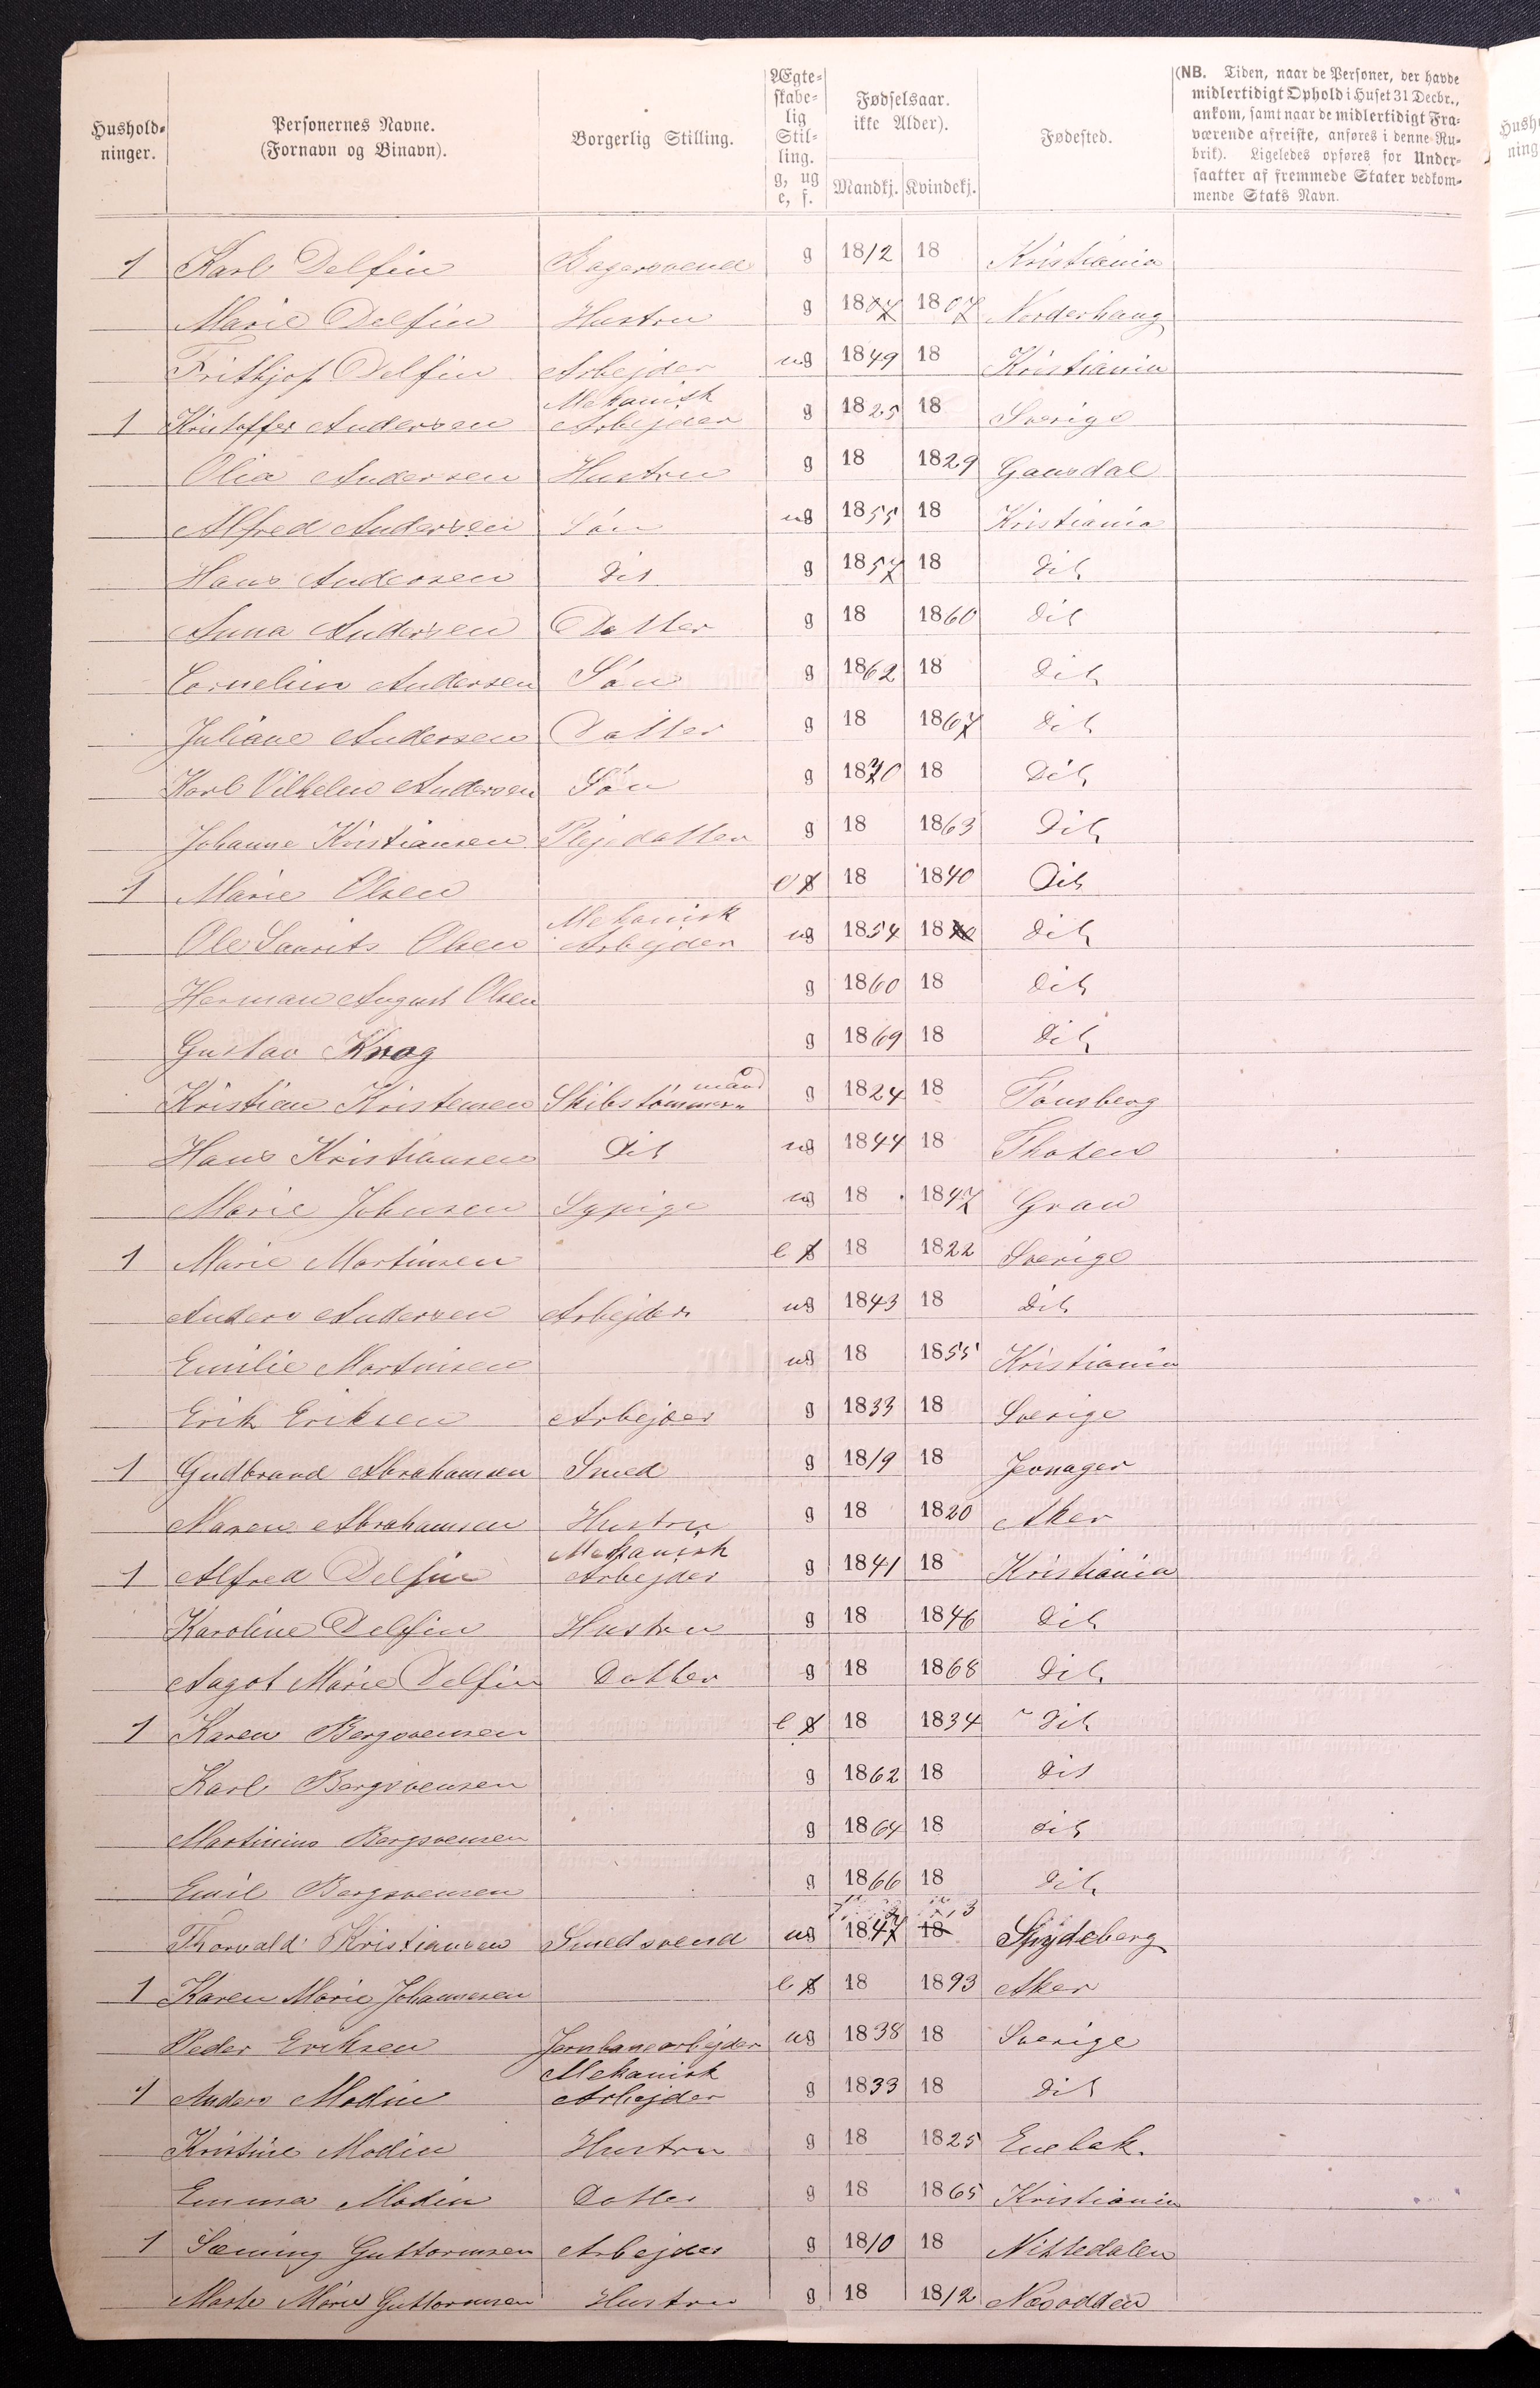 Hushold-
ninger.
Personernes Navne.
(Fornavn og Binavn).
Borgerlig Stilling.
Ægte-
skabe-
lig
Stil-
ling.
g, ug
e, f.
Fødselsaar.
ikke Alder).
Mandkj. Kvindekj.
Fødested.
(NB. Tiden, naar de Personer, der havde
midlertidigt Ophold i Huset 31 Decbr.,
ankom, samt naar de midlertidigt Fra-
værende afreiste, anføres i denne Ru-
brik). Ligeledes opføres for Under-
saatter af fremmede Stater vedkom-
mende Stats Navn.
1 Karl Delfin Bagersvend g 1812 18 Kristiania
Marie Delfin Hustru g 1807 1807 Norderhaug
Frithjof Delfin Arbejder ug 1849 18 Kristiania
Mekanisk
1 Kristoffer Andersen Arbejder g 1825 18 Sverige
Olia Andersen Hustru g 18 1829 Gausdal
Alfred Andersen Søn ug 1855 18 Kristiania
Hans Andersen Dit g 1857 18 Dit
Anna Andersen Datter g 18 1860 Dit
Cornelius Andersen Søn g 1862 18 Dit
Juliane Andersen Datter g 18 1867 Dit
Karl Vilhelm Andersen Søn g 1870 18 Dit
Johanne Kristiansen Plejedatter g 18 1863 Dit
1 Marie Olsen e g 18 1840 Dit
Mekanisk
Ole Laurits Olsen Arbejder ug 1854 1840 Dit
Herman August Olsen g 1860 18 Dit
Gustav Krog g 1869 18 Dit
mand
Kristian Kristensen Skibstømmer= g 1824 18 Tønsberg
Hans Kristiansen Dit ug 1844 18 Thoten
Marie Johnsen Sypige ug 18 1847 Gran
1 Marie Martinsen e g 18 1822 Sverige
Anders Andersen Arbejder ug 1843 18 Dit
Emilie Martinsen ug 18 1855 Kristiania
Erik Eriksen Arbejder g 1833 18 Sverige
1 Gudbrand Abrahamsen Smed g 1819 18 Jevnager
Maren Abrahamsen Hustru g 18 1820 Aker
Mekanisk
1 Alfred Delfin Arbejder g 1841 18 Kristiania
Karoline Delfin Hustru g 18 1846 Dit
Aagot Marie Delfin Datter g 18 1868 Dit
1 Karen Bergsvensen e g 18 1834 Dit
Karl Bergsvensen g 1862 18 Dit
Martinius Bergsvensen g 1864 18 Dit
Emil Bergsvensen g 1866 18 Dit
Thorvald Kristiansen Smedsvend ug 1847 18 Spydeberg
1 Karen Marie Johannesen e g 18 1893 Aker
Peder Eriksen Jernbanearbejder ug 1838 18 Sverige
Mekanisk
1 Anders Modin Arbejder g 1833 18 Dit
Kristine Modin Hustru g 18 1825 Enebak.
Emma Modin Datter g 18 1865 Kristiania
1 Sæming Guttormsen Arbejder g 1810 18 Nittedalen
Marte Marie Guttormsen Hustru g 18 1812 Næsodden